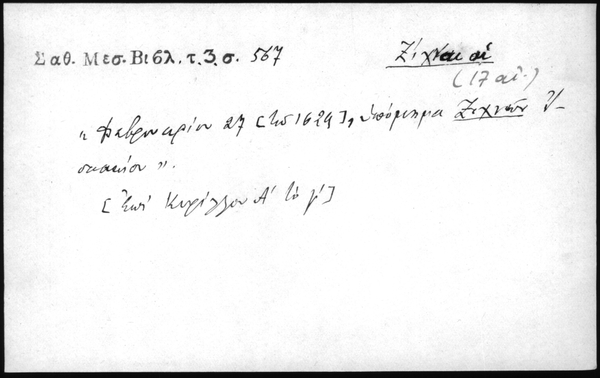 Σαθ. Μεσ. Βιβλ. τ. 3 σ. 567
Ζίχναι αἱ
(17 αἰ.)
" Φεβρουαρίου 27 [τοῦ 1629], ὑπόμνημα Ζιχνῶν Ἰ-
σαακίου ".
[Ἐπὶ Κυρίλλου Α' τὸ γ']